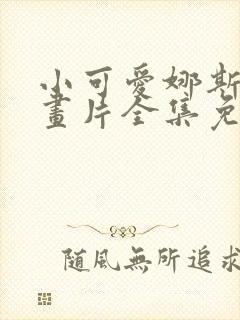 小可愛娜斯
畫片全集免
隨風無所追求